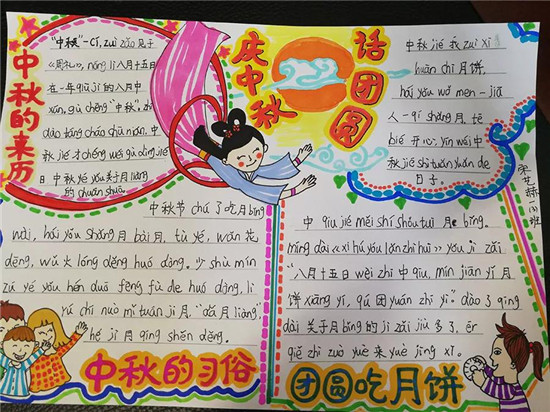 庆中秋
话团圆
中秋的来历
"中秋"-cí, zuì zǎo 见于
《周礼》, nóng lì 八月十五日
在一年 qiū jì 的八月中
xún, gù chēng "中秋", dào
táng cháo chū nián, 中
秋 jié 才 chéng wéi gù dìng jié
日 中秋 yé yǒu 关于月 liàng
的 chuán shuō.
中秋 jié 我 zuì xǐ
huān chī 月饼,
hái yǒu wǒ men 一 jiā
人一 qǐ shǎng 月, tè
bié 开心, yīn wéi 中
秋 jié shì tuán yuán de
日子.
中秋节 chú 了吃月 bǐng
wài, hái yǒu shǎng 月 bài 月, tù yé, wán 花
dēng, wǔ 火 lóng děng huó dòng. 少 shù mín
zú yé yǒu hěn duō fēng fù de huó dòng, lì
yú chī nuò mǐ tuán jī 月, "dǎ 月 liàng"
hé jì 月 qǐng shén děng.
中秋的习俗
中 qiu jié měi shí shǒu tuī 月 bǐng.
míng dài 《xī hú yóu lǎn zhì huì》 yǒu jì zǎi
"八月十五日 wèi zhī 中 qiū, mín jiān yǐ 月
饼 xiāng yí, qǔ 团 yuán zhī yì". dào 了 qīng
dài 关于月 bǐng 的 jì zǎi jiù 多了, ér
qiě zhì zuò yuè 来 yuè jīng xī.
团圆吃月饼